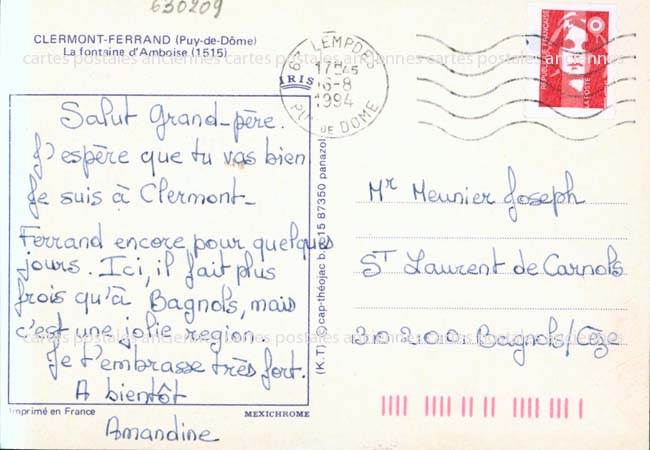 630209
CLERMONT-FERRAND (Puy-de-Dôme)
La fontaine d'Amboise (1515)
63 LEMPDES
17H45
16-8
1994
PUY DE DOME
REPUBLIQUE FRANÇAISE
LA POSTE
IRIS
Salut Grand-père.
J'espère que tu vas bien
Je suis à Clermont-
Ferrand encore pour quelques
jours. Ici, il fait plus
frois qu'à Bagnols, mais
c'est une jolie region.
Je t'embrasse très fort.
A bientôt
Amandine
Imprimé en France
MEXICHROME
(K.T) © cap-théojac b.p. 15 87350 panazol
Mr Meunier Joseph
ST Laurent de Carnols
30200. Bagnols/Cèze
cartes postales anciennes cartes postales anciennes cartes postales anciennes
cartes postales anciennes cartes postales anciennes cartes postales anciennes